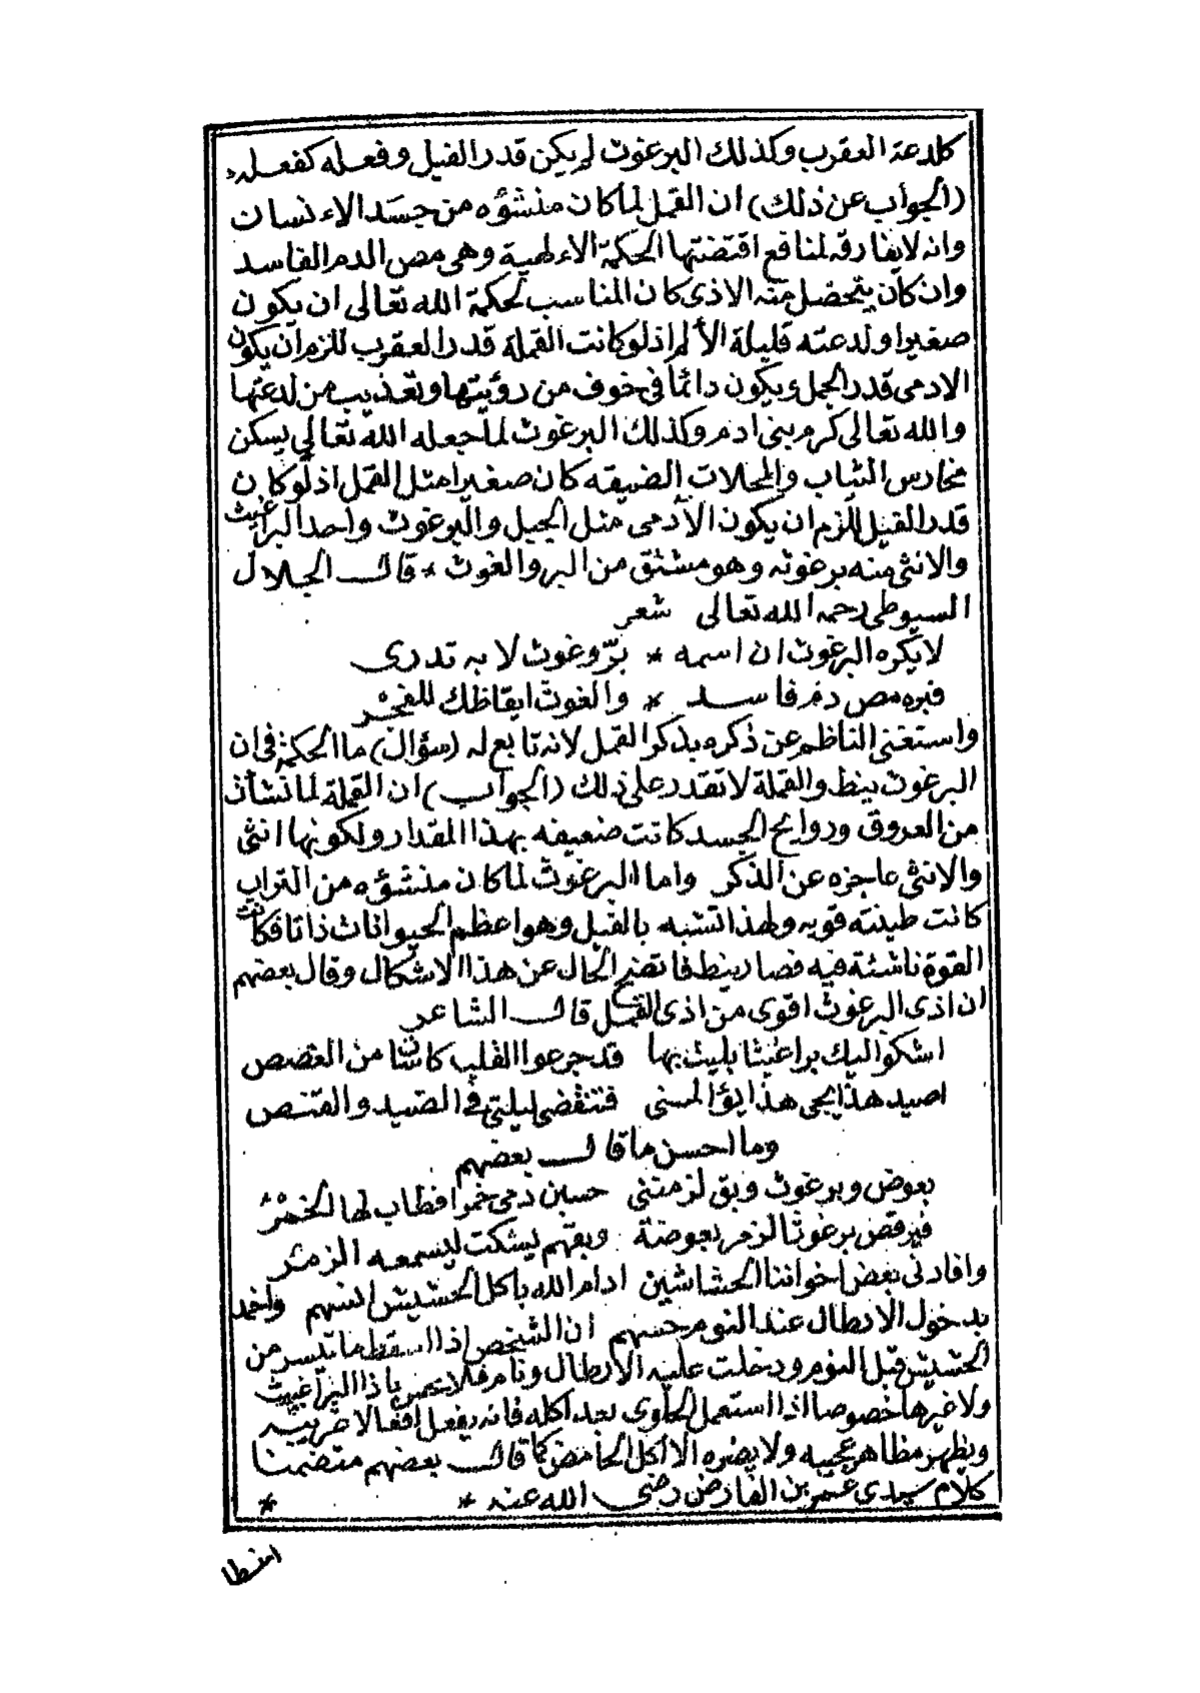 كلدعة العقرب وكذلك البرغوث لم يكن قدر الفيل وفعله كفعله
(الجواب عن ذلك) ان القمل لما كان منشؤه من جسد الاءنسان
وانه لايفارقه لمنافع اقتضتها الحكمة الاءلهية وهى مص الدم الفاسد
وان كان يتحصل منه الاذى كان المناسب لحكمة الله تعالى ان يكون
صغيرا ولدعته قليلة الألم اذ لو كانت القملة قدر العقرب للزم ان يكون
الادمى قدر الجمل ويكون دائما فى خوف من رؤيتها وتعذيب من لدعتها
والله تعالى كرم بنى ادم وكذلك البرغوث لما جعله الله تعالى يسكن
مخارس الثياب والمحلات الضيقه كان صغيرا مثل القمل اذ لو كان
قدر الفيل للزم ان يكون الآدمى مثل الجبل والبرغوث واحد البراغيث
والانثى منه برغوثه وهو مشتق من البر والغوث * قال الجلال
السيوطى رحمه الله تعالى شعر
لا يكره البرغوث ان اسمه * برّ وغوث لا به تدرى
فبره مص دم فاسد * والغوث ايقاظك للفجر
واستغنى الناظم عن ذكره بذكر القمل لانه تابع له (سؤال) ما الحكمة فى ان
البرغوث ينط والقملة لا تقدر على ذلك (الجواب) ان القملة لما نشأت
من العروق وروايح الجسد كانت ضعيفه بهذا المقدار ولكونها انثى
والانثى عاجزه عن الذكر واما البرغوث لما كان منشؤه من التراب
كانت طينته قويه ولهذا تشبه بالفيل وهو اعظم الحيوانات ذاتا فكانت
القوة ناشئة فيه فصار ينط فاتضح الحال عن هذا الاشكال وقال بعضهم
ان اذى البرغوث اقوى من اذى القمل قال الشاعر
اشكو اليك براغيثا بليت بها قد جرعوا القلب كاسا من الغصص
اصيد هذا يجى هذا يؤالمنى فتنقضى ليلتى فى الصيد والقنص
وما احسن ما قال بعضهم
بعوض وبرغوث وبق لزمننى حسبن دمى خمرا فطاب لها الخمر
فيرقص برغوثا لزمر بعوضة وبقهم يسكت ليسمعه الزمر
وافادنى بعض اخواننا الحشاشين ادام الله باكل الحشيش انسهم واخمد
بدخول الارطال عند النوم حسهم ان الشخص اذا ما تيسر من
الحشيش قبل النوم ودخلت عليه الارطال ونام فلا يحس باذا البراغيث
ولا غيرها خصوصا اذا استعمل الحلاوى بعد اكله فانه يفعل افعالا غريبه
ويظهر مظاهر عجيبه ولا يضره الا اكل الحامض كما قال بعضهم متضمنا
كلام سيدى عمر بن الفارض رضى الله عنه * *